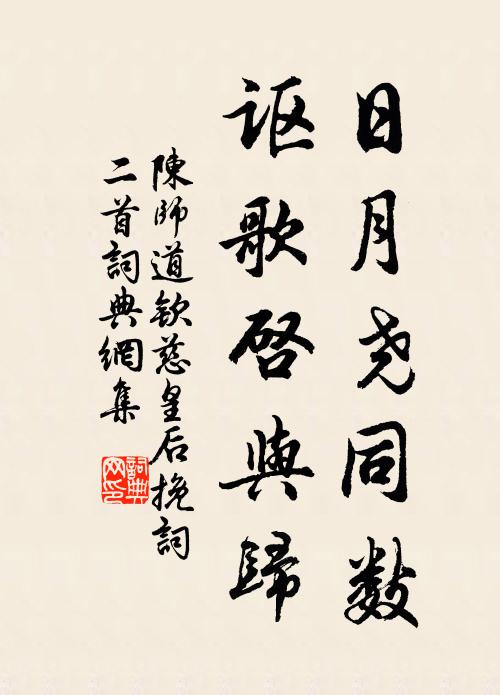 日月尧同数
讴歌啓與歸
陳師道欽慈皇后挽詞
二首詞典網集
詞典
网印